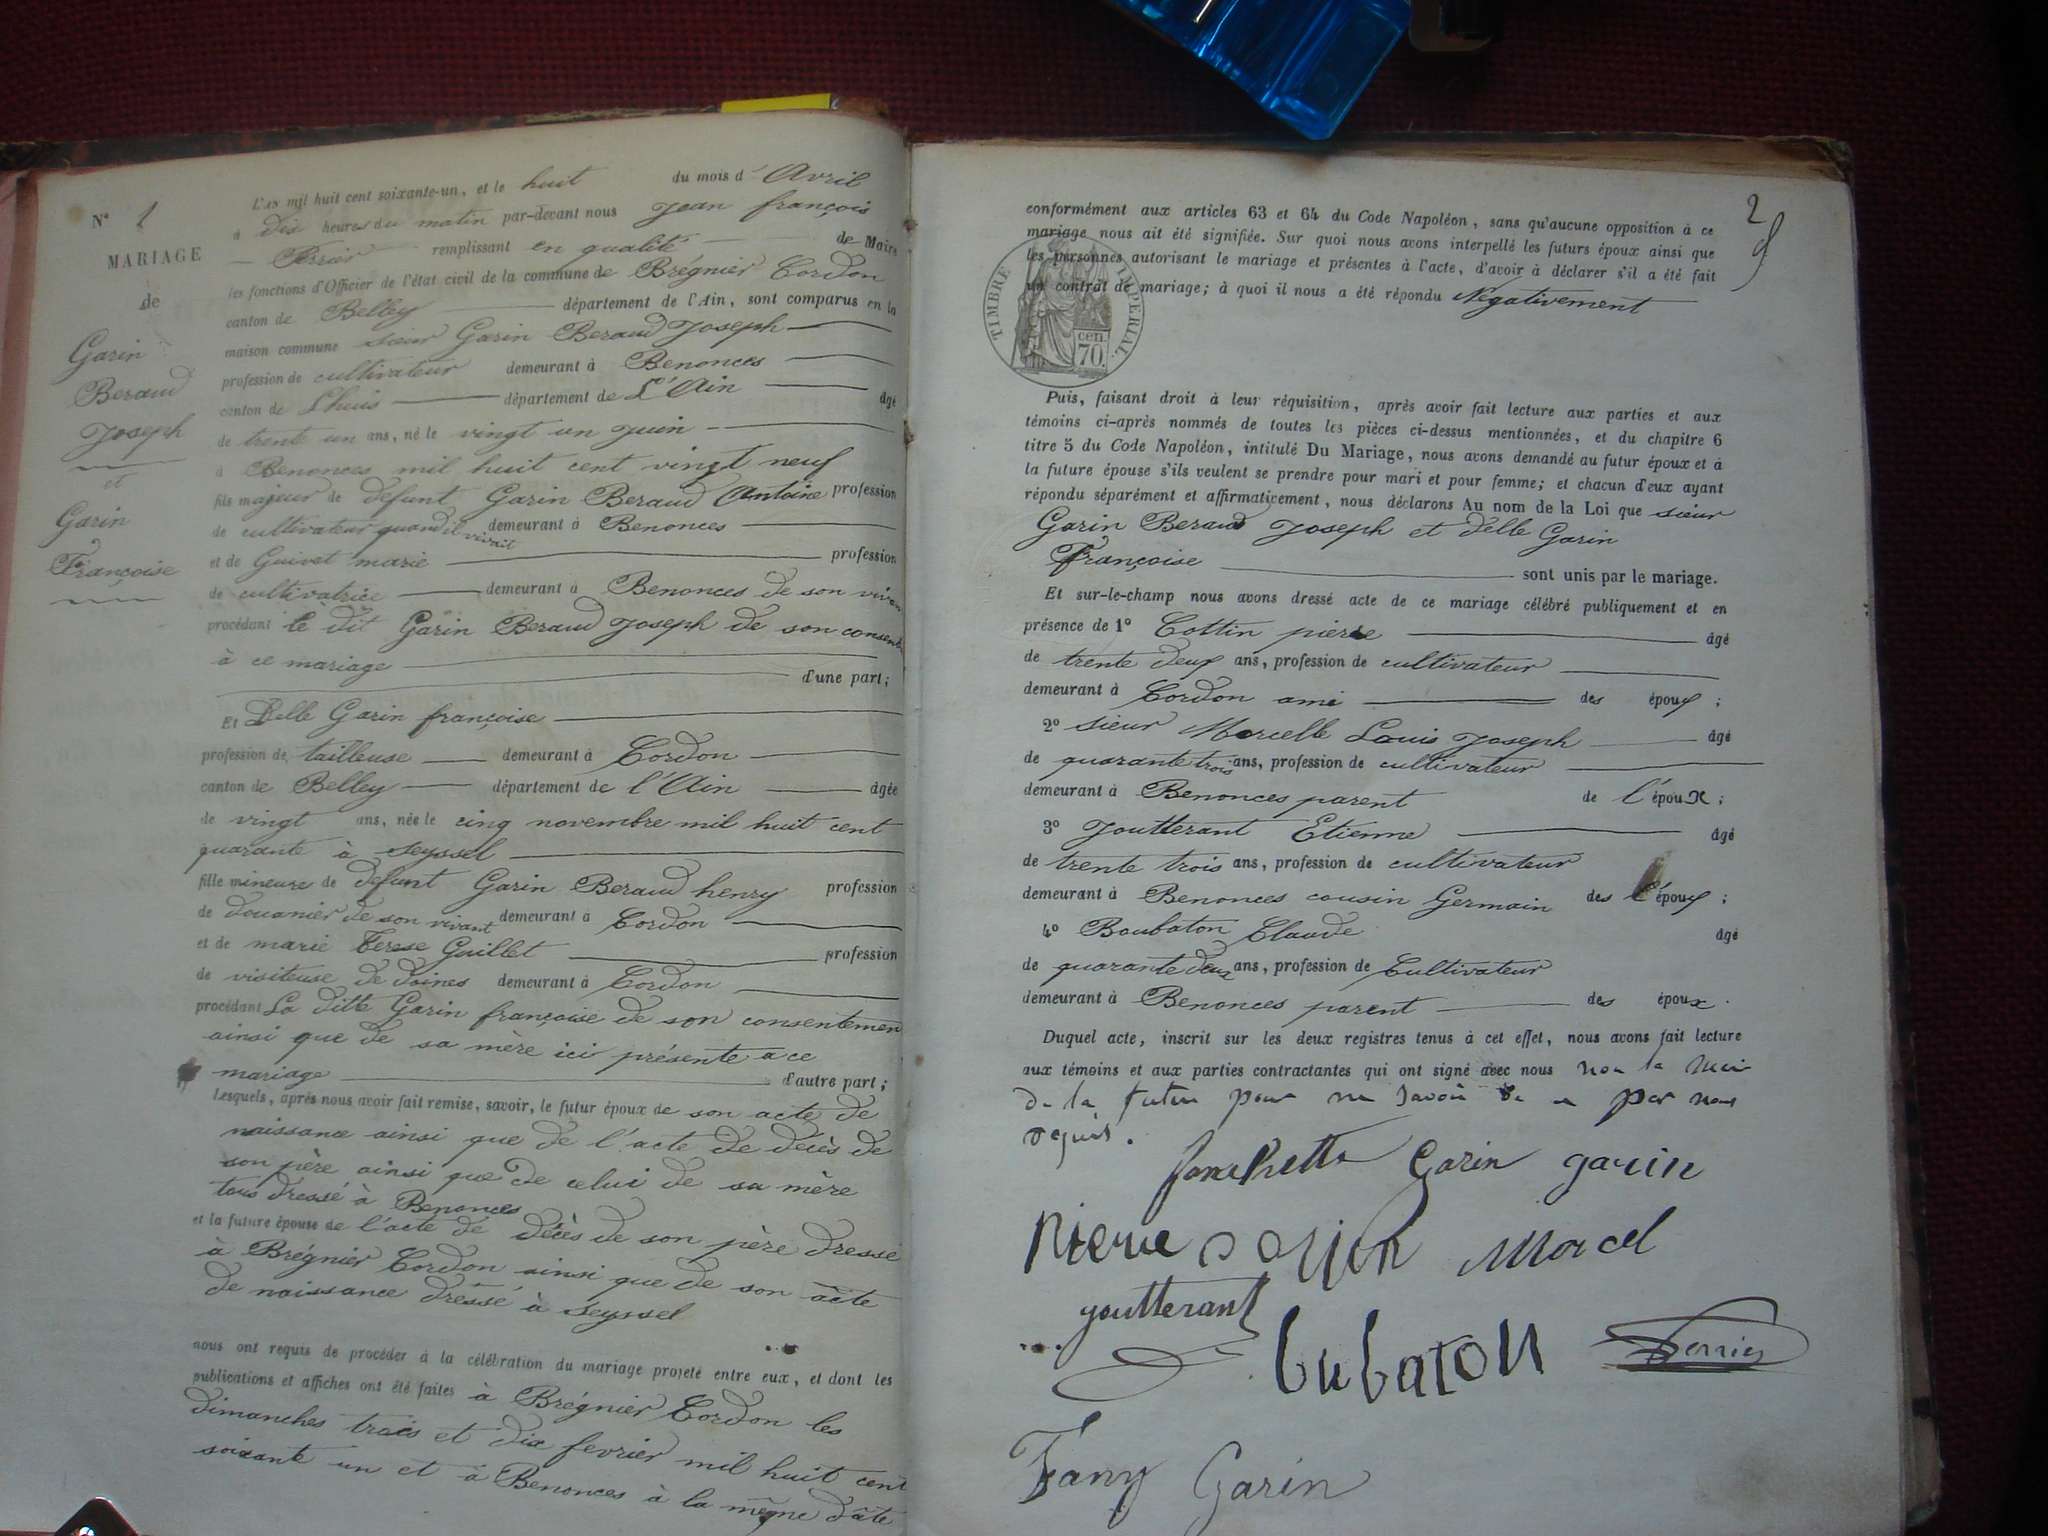 N° 2
MARIAGE
de
Garin
Beraud
Joseph
et
Garin
Françoise
L'AN mil huit cent soixante-un, et le huit du mois d'Avril
à dix heures du matin par-devant nous Jean françois
Perrier remplissant en qualité de Maire
les fonctions d'Officier de l'état civil de la commune de Brégnier Cordon
canton de Belley département de l'Ain, sont comparus en la
maison commune sieur Garin Beraud Joseph
profession de cultivateur demeurant à Benonces
canton de Lhuis département de L'Ain âgé
de trente un ans, né le vingt un Juin
à Benonces mil huit cent vingt neuf
fils majeur de defunt Garin Beraud Antoine profession
de cultivateur quand il vivait demeurant à Benonces
et de Guivet marie profession
de cultivatrice demeurant à Benonces de son vivan
procédant le dit Garin Beraud Joseph de son consent
à ce mariage
d'une part;
Et Delle Garin françoise
profession de tailleuse demeurant à Cordon
canton de Belley département de l'Ain âgée
de vingt ans, née le cinq novembre mil huit cent
quarante à Seyssel
fille mineure de defunt Garin Beraud henry profession
de douanier de son vivant demeurant à Cordon
et de marie Terese Guillet profession
de visiteuse de doines demeurant à Cordon
procédant La ditte Garin françoise de son consentemen
ainsi que de sa mère ici présente a ce
mariage d'autre part;
Lesquels, après nous avoir fait remise, savoir, le futur époux de son acte de
naissance ainsi que de l'acte de décès de
son père ainsi que de celui de sa mère
tous dressé à Benonces
et la future épouse de l'acte de décès de son père dressé
à Brégnier Cordon ainsi que de son acte
de naissance dressé à Seyssel
nous ont requis de procéder à la célébration du mariage projeté entre eux, et dont les
publications et affiches ont été faites à Brégnier Cordon les
dimanches trois et dix fevrier mil huit cent
soixante un et à Benonces à la même date
2
conformément aux articles 63 et 64 du Code Napoléon, sans qu'aucune opposition à ce
mariage nous ait été signifiée. Sur quoi nous avons interpellé les futurs époux ainsi que
les personnes autorisant le mariage et présentes à l'acte, d'avoir à déclarer s'il a été fait
un contrat de mariage; à quoi il nous a été répondu Négativement
TIMBRE IMPERIAL.
70 cen.
Puis, faisant droit à leur réquisition, après avoir fait lecture aux parties et aux
témoins ci-après nommés de toutes les pièces ci-dessus mentionnées, et du chapitre 6
titre 5 du Code Napoléon, intitulé Du Mariage, nous avons demandé au futur époux et à
la future épouse s'ils veulent se prendre pour mari et pour femme; et chacun d'eux ayant
répondu séparément et affirmativement, nous déclarons Au nom de la Loi que sieur
Garin Beraud Joseph et Delle Garin
Françoise sont unis par le mariage.
Et sur-le-champ nous avons dressé acte de ce mariage célébré publiquement et en
présence de 1° Cottin pierre âgé
de trente deux ans, profession de cultivateur
demeurant à Cordon ami des époux;
2° sieur Morcelle Louis Joseph âgé
de quarante trois ans, profession de cultivateur
demeurant à Benonces parent de l'époux;
3° Joutterant Etienne âgé
de trente trois ans, profession de cultivateur
demeurant à Benonces cousin Germain des l'époux;
4° Boubaton Claude âgé
de quarante deux ans, profession de Cultivateur
demeurant à Benonces parent des époux.
Duquel acte, inscrit sur les deux registres tenus à cet effet, nous avons fait lecture
aux témoins et aux parties contractantes qui ont signé avec nous non la mère
de la future pour ne savoir de ce par nous
requis.
Garin garin
Pierre Morcel
youtterant
bubaton Perrier
Fany Garin